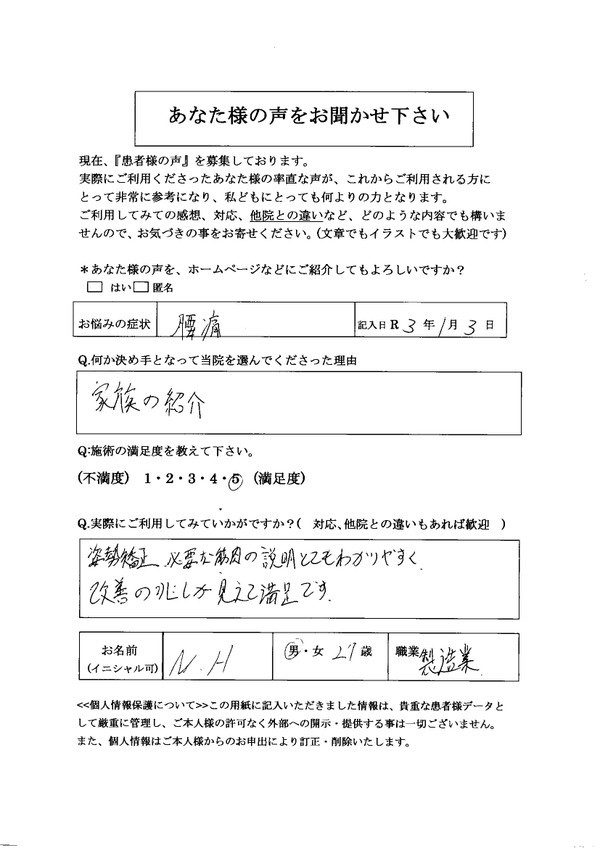 あなた様の声をお聞かせ下さい
現在、『患者様の声』を募集しております。
実際にご利用くださったあなた様の率直な声が、これからご利用される方に
とって非常に参考になり、私どもにとっても何よりの力となります。
ご利用してみての感想、対応、他院との違いなど、どのような内容でも構いま
せんので、お気づきの事をお寄せください。(文章でもイラストでも大歓迎です)
＊あなた様の声を、ホームページなどにご紹介してもよろしいですか？
□ はい □ 匿名
お悩みの症状 腰痛 記入日 R 3 年 1 月 3 日
Q.何か決め手となって当院を選んでくださった理由
家族の紹介
Q:施術の満足度を教えて下さい。
(不満度) 1・2・3・4・5 (満足度)
Q.実際にご利用してみていかがですか？( 対応、他院との違いもあれば歓迎 )
姿勢矯正 必要な筋肉の説明とてもわかりやすく
改善の兆しが見えて満足です.
お名前 (イニシャル可) N.H 男・女 27歳 職業 製造業
<<個人情報保護について>>この用紙に記入いただきました情報は、貴重な患者様データと
して厳重に管理し、ご本人様の許可なく外部への開示・提供する事は一切ございません。
また、個人情報はご本人様からのお申出により訂正・削除いたします。